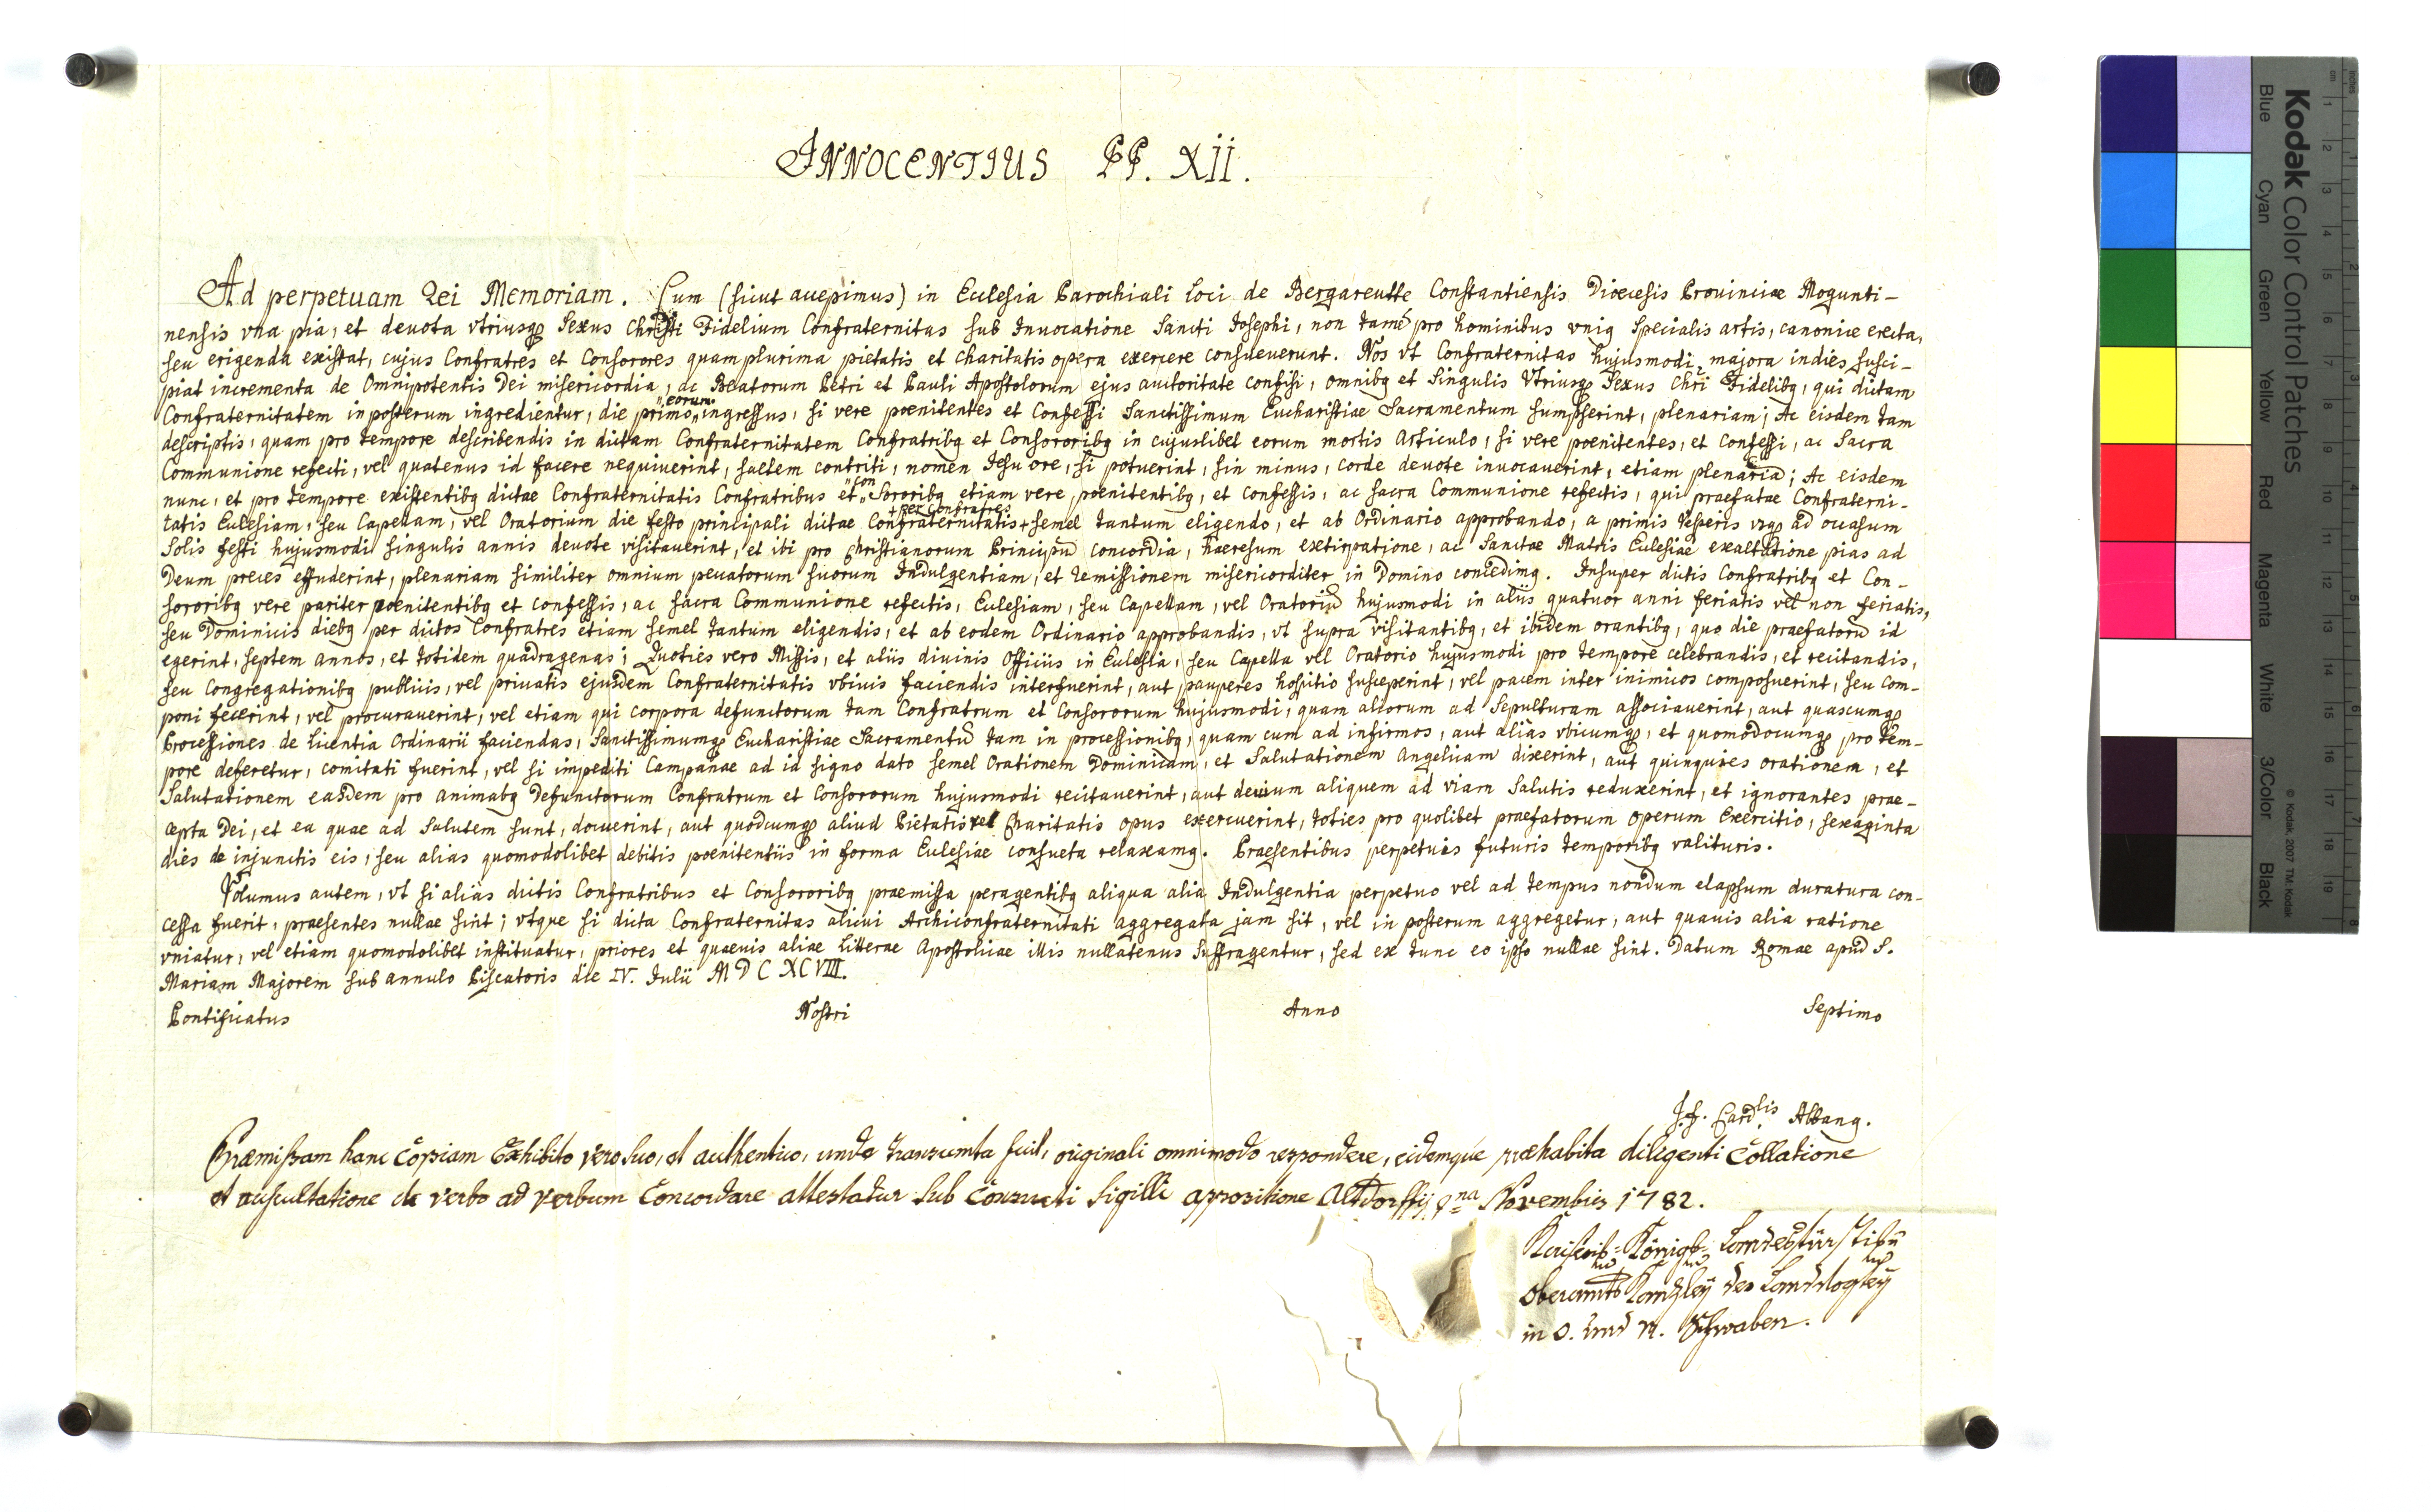 INNOCENTIUS PP. XII.
Ad perpetuam Rei Memoriam. Cum (sicut accepimus) in Ecclesia Parochiali loci de Bergareutte Constantiensis Dioecesis Prouinciae Mogunti-
nensis vna pia, et deuota vtriusq₃ Sexus Christi Fidelium Confraternitas sub Inuocatione Sancti Josephi, non tamē pro hominibus vnig specialis artis, canonice erecta,
seu erigenda existat, cujus Confratres et Consorores quamplurima pietatis et charitatis opera exercere consueuerunt. Nos vt Confraternitas hujusmodi majora indies susci-
piat incrementa de Omnipotentis Dei misericordia, ac Beatorum Petri et Pauli Apostolorum ejus auctoritate confisi, omnibq et Singulis Vtriusq₃ Sexus Chri Fidelibq, qui dictam
Confraternitatem in posterum ingredientur, die primo "eorum" ingressus, si vere poenitentes et Confessi Sanctissimum Eucharistiae Sacramentum sumpserint, plenariam; Ac eisdem tam
descriptis, quam pro tempore describendis in dictam Confraternitatem Confratribq et Consororibq in cujuslibet eorum mortis Articulo, si vere poenitentes, et Confessi, ac Sacra
Communione refecti, vel quatenus id facere nequiuerint, saltem contriti, nomen Jesu ore, si potuerint, sin minus, corde deuote inuocauerint, etiam plenariā; Ac eisdem
nunc, et pro tempore existentibq dictae Confraternitatis Confratribus et "con" Sororibq etiam vere poenitentibq, et confessis, ac sacra Communione refectis, qui praefatae Confraterni-
tatis Ecclesiam, seu Capellam, vel Oratorium die festo principali dictae Confraternitatis + per Confratres + semel tantum eligendo, et ab Ordinario approbando, a primis Vesperis vsq₃ ad occasum
Solis festi hujusmodi singulis annis deuote visitauerint, et ibi pro Christianorum Principū concordia, haeresum extirpatione, ac Sanctae Matris Ecclesiae exaltatione pias ad
Deum preces effuderint, plenariam similiter omnium peccatorum suorum Indulgentiam, et remissionem misericorditer in Domino concedimq. Insuper dictis Confratribq et Con-
sororibq vere pariter poenitentibq et confessis, ac sacra Communione refectis, Ecclesiam, seu Capellam, vel Oratoriū hujusmodi in aliis quatuor anni feriatis vel non feriatis,
seu Dominicis diebq per dictos Confratres etiam semel tantum eligendis, et ab eodem Ordinario approbandis, vt supra visitantibq, et ibidem orantibq, quo die praefatorū id
egerint, septem annos, et totidem quadragenas; Quoties vero Missis, et aliis diuinis Officiis in Ecclesia, seu Capella vel Oratorio hujusmodi pro tempore celebrandis, et recitandis,
seu Congregationibq publicis, vel priuatis ejusdem Confraternitatis vbiuis faciendis interfuerint, aut pauperes hospitio susceperint, vel pacem inter inimicos composuerint, seu com-
poni fecerint, vel procurauerint, vel etiam qui corpora defunctorum tam Confratrum et Consororum hujusmodi, quam aliorum ad Sepulturam associauerint, aut quascumq₃
Processiones de licentia Ordinarii faciendas, Sanctissimumq₃ Eucharistiae Sacramentū tam in processionibq, quam cum ad infirmos, aut alias vbicumq₃, et quomodocumq₃ pro tem-
pore deferetur, comitati fuerint, vel si impediti Campanae ad id signo dato semel Orationem Dominicam, et Salutationem Angelicam dixerint, aut quinquies orationem, et
Salutationem easdem pro animabq Defunctorum Confratrum et Consororum hujusmodi recitauerint, aut deuium aliquem ad viam Salutis reduxerint, et ignorantes prae-
cepta Dei, et ea quae ad Salutem sunt, docuerint, aut quodcumq₃ aliud Pietatis vel Charitatis opus exercuerint, toties pro quolibet praefatorum operum Exercitio, sexaginta
dies de injunctis eis, seu alias quomodolibet debitis poenitentiis in forma Ecclesiae consueta relaxamq. Praesentibus perpetuis futuris temporibq valituris.
Volumus autem, vt si alias dictis Confratribus et Consororibq praemissa peragentibq aliqua alia Indulgentia perpetuo vel ad tempus nondum elapsum duratura con-
cessa fuerit, praesentes nullae sint; vtque si dicta Confraternitas alicui Archiconfraternitati aggregata jam sit, vel in posterum aggregetur, aut quauis alia ratione
vniatur, vel etiam quomodolibet instituatur, priores et quaeuis aliae litterae Apostolicae illis nullatenus suffragentur, sed ex tunc eo ipso nullae sint. Datum Romae apud S.
Mariam Majorem sub annulo Piscatoris die IV. Julii M D C XCVIII.
Pontificatus Nostri Anno Septimo
J. F. Card.lis Albanq.
Præmissam hanc Copiam Exhibito vero suo, et authentico, unde transumta fuit, originali omnimodo respondere, eidemque præhabita diligenti Collatione
et auscultatione de verbo ad verbum Concordare attestatur sub Consueti Sigilli appositione Altdorffij 9na Novembris 1782.
Kaiserl= Königl= Landesfürstl
Oberamts Kanzley der Landvogtey
in O. und N. Schwaben.
Kodak Color Control Patches
Blue Cyan Green Yellow Red Magenta White 3/Color Black
© Kodak, 2007 TM: Kodak